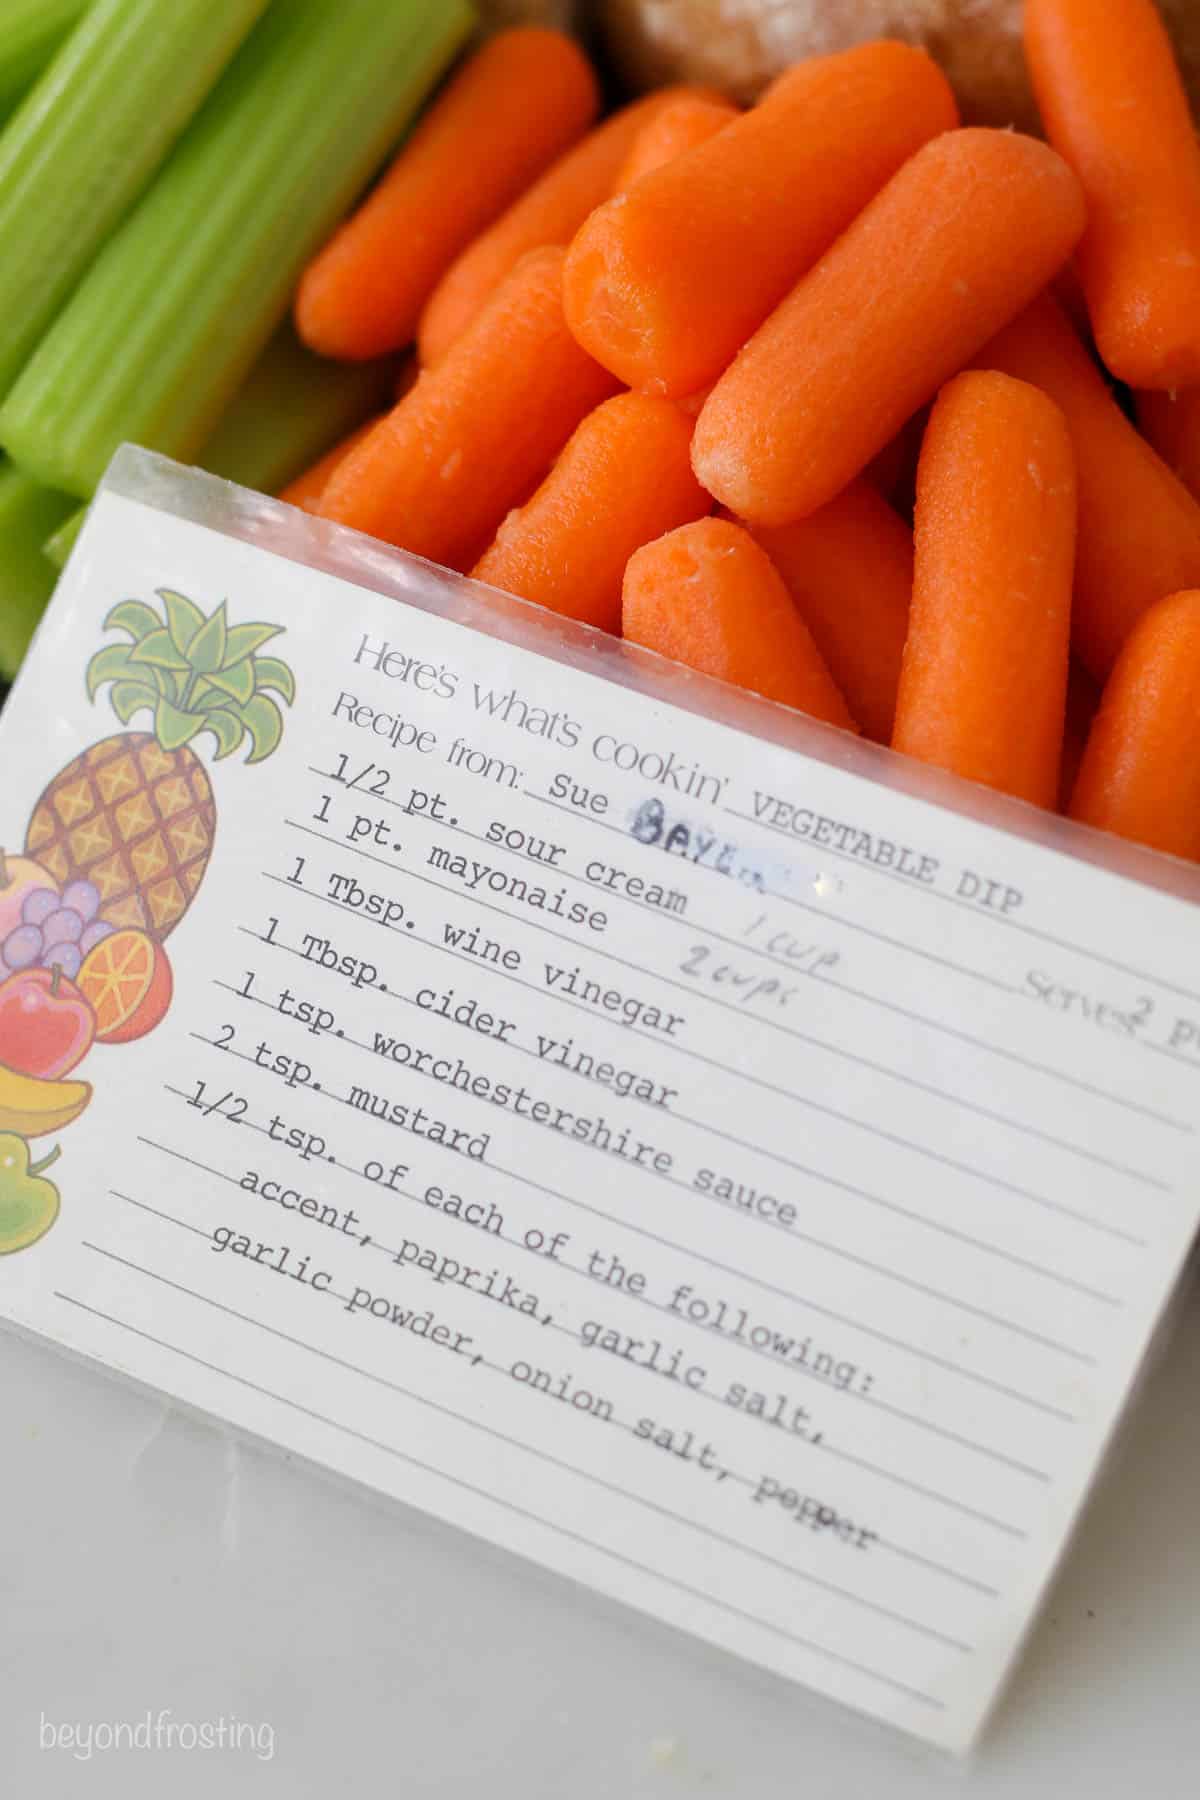 Here's what's cookin' VEGETABLE DIP
Recipe from: Sue Serves 2
1/2 pt. sour cream 1 cup
1 pt. mayonaise 2 cups
1 Tbsp. wine vinegar
1 Tbsp. cider vinegar
1 tsp. worchestershire sauce
2 tsp. mustard
1/2 tsp. of each of the following:
accent, paprika, garlic salt,
garlic powder, onion salt, pepper
beyondfrosting